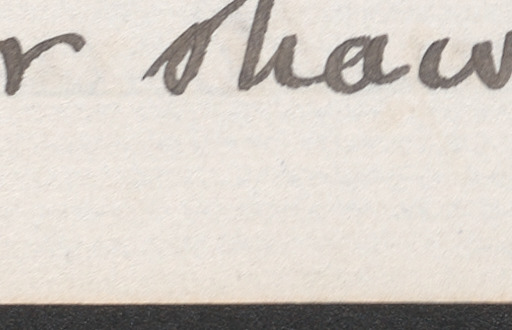 r shaw